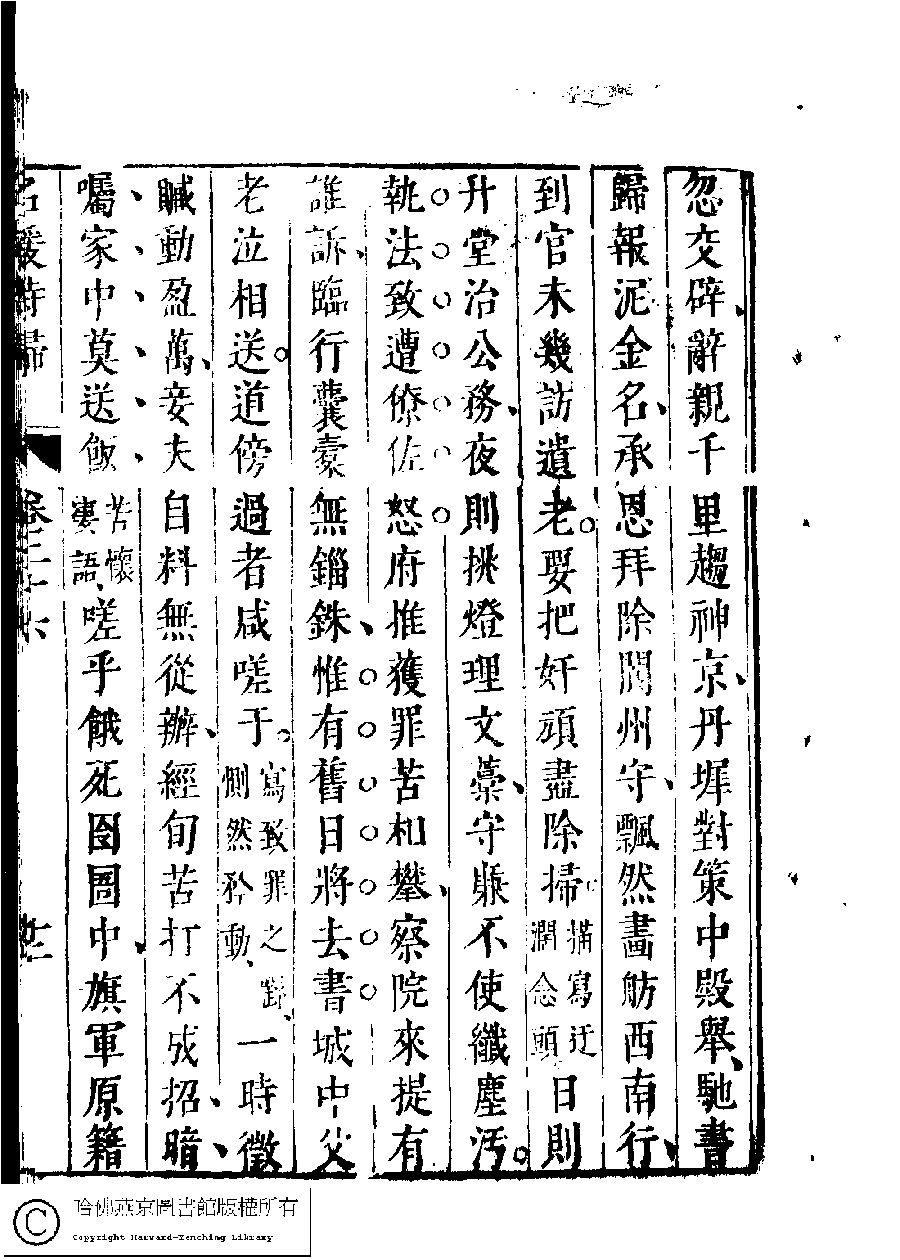 忽交辟辭親千里趨神京丹墀對策中殿舉馳書
歸報泥金名承恩拜除閬州守飄然畫舫西南行
到官未幾訪遺老要把奸頑盡除掃描寫迂濶念頭日則
升堂治公務夜則挑燈理文藁守𢈘不使纖塵汚
執法致遭僚佐怒府推獲罪苦相攀察院來提有
誰訴臨行囊橐無錙銖惟有舊日將去書城中父
老泣相送道傍過者咸嗟于寫致罪之羇惻然矜動一時徵
贓動盈萬妾夫自料無從辦經旬苦打不成招暗
囑家中莫送飯苦懷婁語嗟乎餓死囹圄中旗軍原籍
名媛詩歸
卷二十六
廿二
哈佛燕京圖書館版權所有
Copyright Harvard-Yenching Library